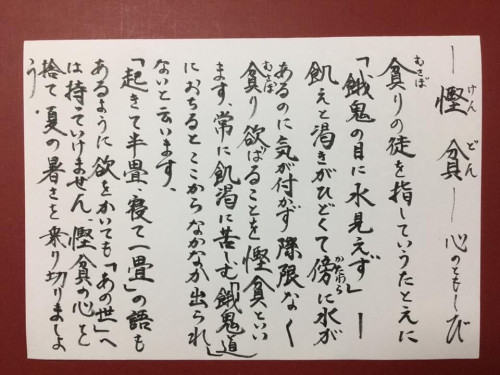 ー慳貪ー心のともしび
けんどん
貪りの徒を指していうたとえに
むさぼ
「餓鬼の目に水見えず」ー
飢えと渇きがひどくて傍に水が
かたわら
あるのに気が付かず際限なく
貪り欲ばることを慳貪といい
むさぼ
ます、常に飢渇に苦しむ「餓鬼道」
におちるとここからなかなか出られ
ないと云います、
「起きて半畳、寝て一畳」の語も
あるように欲をかいても「あの世」へ
は持っていけません、慳貪の心を
捨て、夏の暑さを乗り切りましょ
う